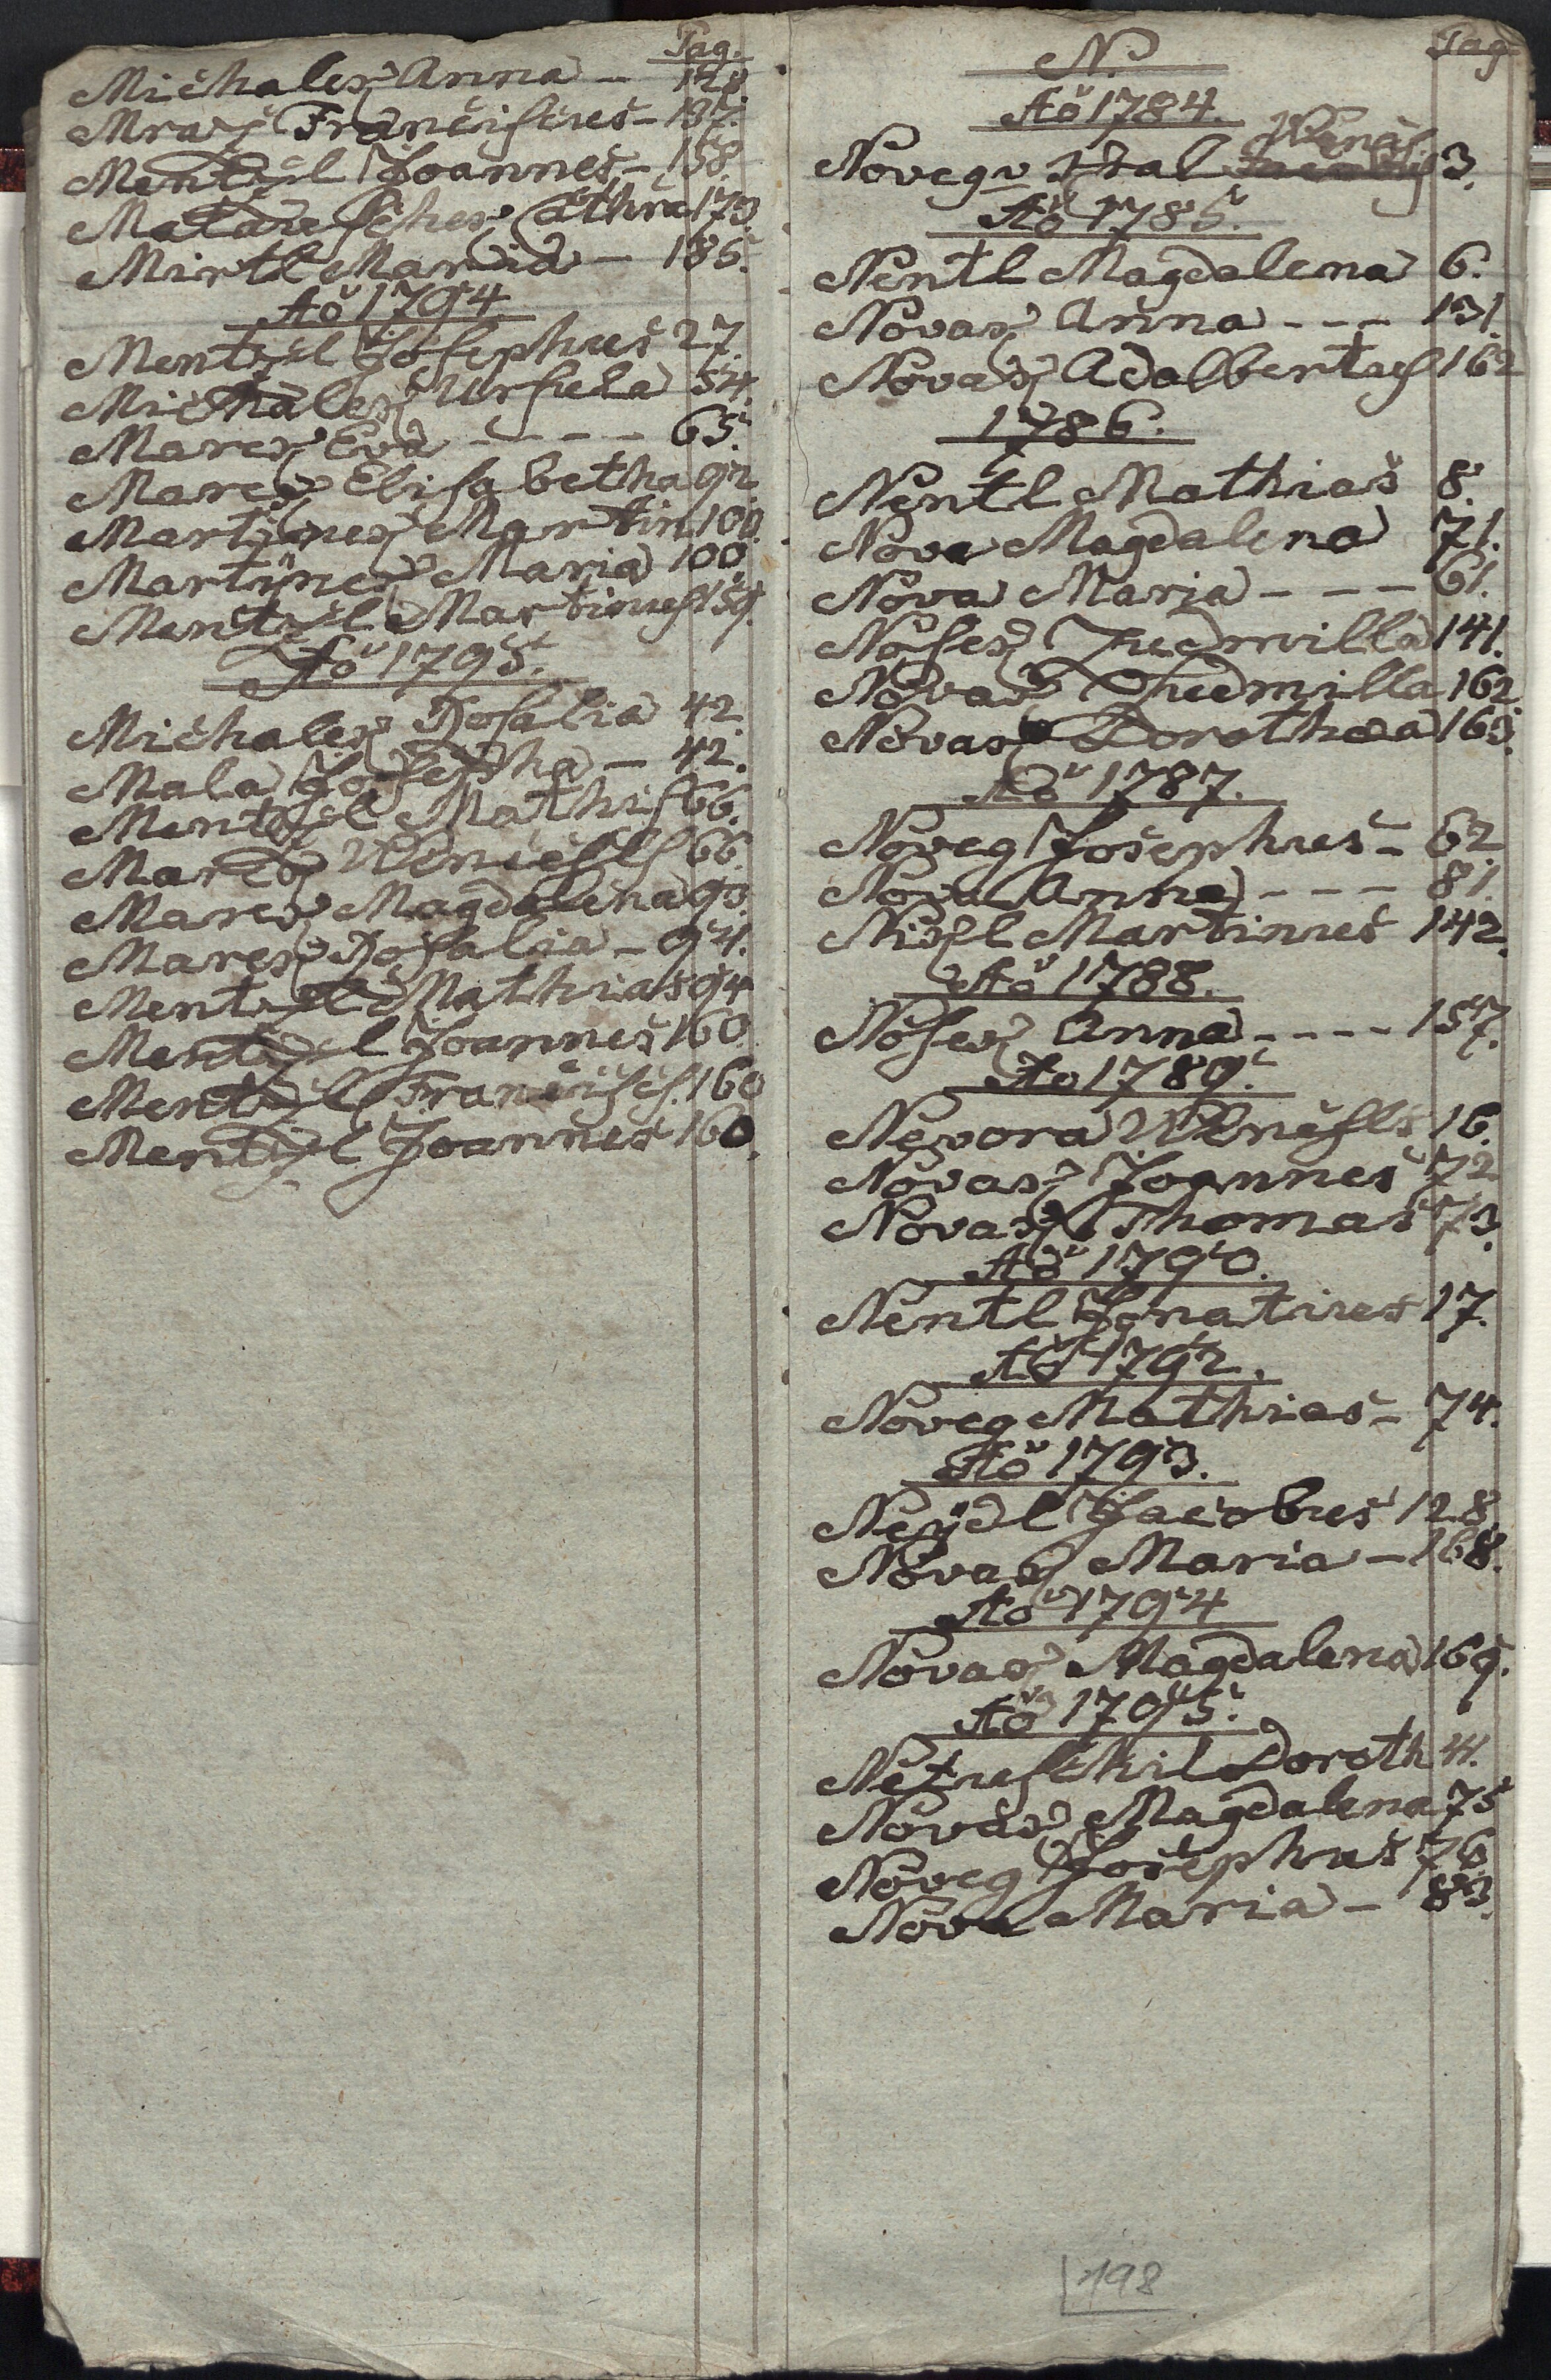 Pag.
Michalek Anna - 128
Mraz Franciscus - 137.
Mentzl Joannes - 158.
Matauscheck Cathra 173
Mirtl Maria - 185.
Aõ 1794
Mentzel Josephus 27.
Michalek Ursula 54.
Marek Eva - - - - 65.
Marek Elisabetha 92
Martinek Martin 100.
Martinek Maria 100.
Mentzel Martinus 159.
Aõ 1795.
Michalek Rosalia 42
Mala Josepha - 42.
Mentzel Mathis 66.
Marek Wencesls 66.
Marek Magdalena 93.
Marek Rosalia - 94.
Mentzel Mathias 94
Mentzel Joannes 160
Mentzel Francisc. 160
Mentzel Joannes 160.
N. Pag
Aõ 1784.
Wences.
Novegv 3.
Aõ 1785.
Nentl Magdalena 6.
Novak Anna - - - 131.
Novak Adalbertus 162
1786.
Nentl Mathias 8.
Nova Magdalena 71.
Nova Maria - - - 61.
Nosek Ludmilla 141.
Novak Ludmilla 162
Novak Dorothea 163.
Aõ 1787.
Noveg Josephus - 62
Nova Anna - - - 81.
Martinus 142.
Aõ 1788.
Nosek Anna - - - - 157.
Aõ 1789.
Nevora Wencesls 16.
Novak Joannes 72
Novak Thomas 73.
Aõ 1790.
Nentl Ignatius 17.
Aõ 1792.
Noveg Mathias - 74.
Aõ 1793.
Neÿdl Jacobus 128.
Novak Maria - 168.
Aõ 1794
Novak Magdalena 169.
Aõ 1795.
Netuschil Doroth 41.
Novak Magdalena 75
Noveg Josephus 76
Nova Maria - 83.
198